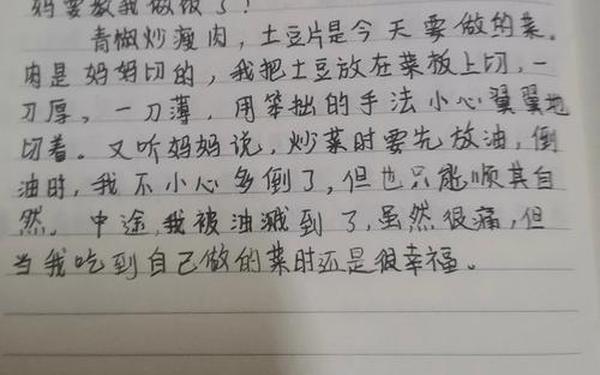 妈要教我做饭了!
青椒炒瘦肉,土豆片是今天要做的菜。
肉是妈妈切的,我把土豆放在菜板上切,一
刀厚,一刀薄,用笨拙的手法小心翼翼地
切着。又听妈妈说,炒菜时要先放油,倒
油时,我不小心多倒了,但也只能顺其自
然。中途,我被油溅到了,虽然很痛,但
当我吃到自己做的菜时还是很幸福。